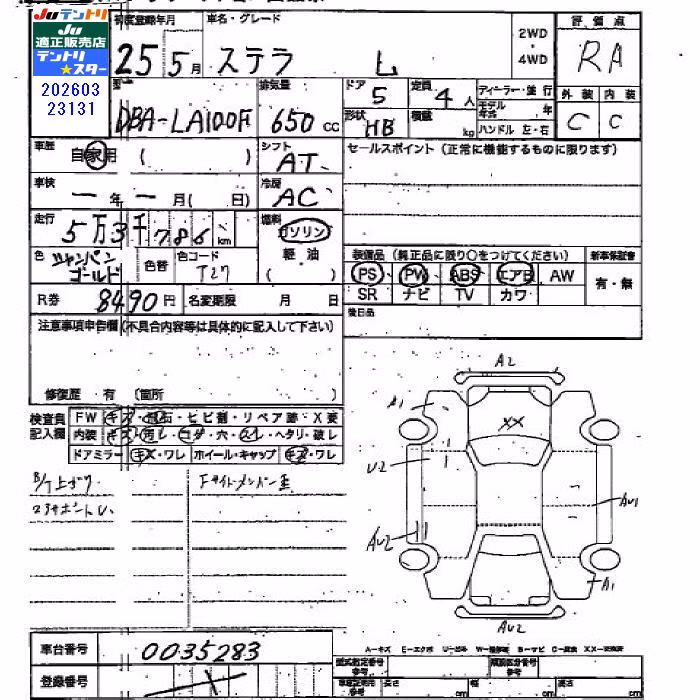 JUテントリ
JU
適正販売店
テントリ
★スター
202603
23131
初度登録年月
25 5月
車名・グレード
ステラ L
2WD
・
4WD
評価点
RA
外装 内装
C C
型
DBA-LA100F
排気量
650 CC
ドア
5
定員
4人
形状
HB
積載
kg
ディーラー・並行
モデル
年式 年
ハンドル 左・右
車歴
自家用 ( )
シフト
AT
セールスポイント (正常に機能するものに限ります)
車検
ー年ー月( 日)
冷房
AC
走行
5万3千786km
燃料
ガソリン
軽油
( )
色
シャンパン
ゴールド
色替
色コード
T27
装備品 (純正品に限り○をつけてください)
新車保証書
PS PW ABS エアB AW
SR ナビ TV カワ
有・無
R券
8490円
名変期限 月 日
後日品
注意事項申告欄(不具合内容等は具体的に記入して下さい)
修復歴 有 (箇所 )
検査員
記入欄
FW キズ・飛石・ヒビ割・リペア跡・X要
内装 キズ・汚レ・コゲ・穴・スレ・ヘタリ・破レ
ドアミラー キズ・ワレ ホイール・キャップ キズ・ワレ
Fサイドメンバー歪
A2
A1
XX
U2
AU1
AU2
A1
AU2
車台番号
0035283
登録番号
A-キズ E-エクボ
型式指定番号
参考
類別区分番号
参考
長さ cm
幅 cm
高さ cm